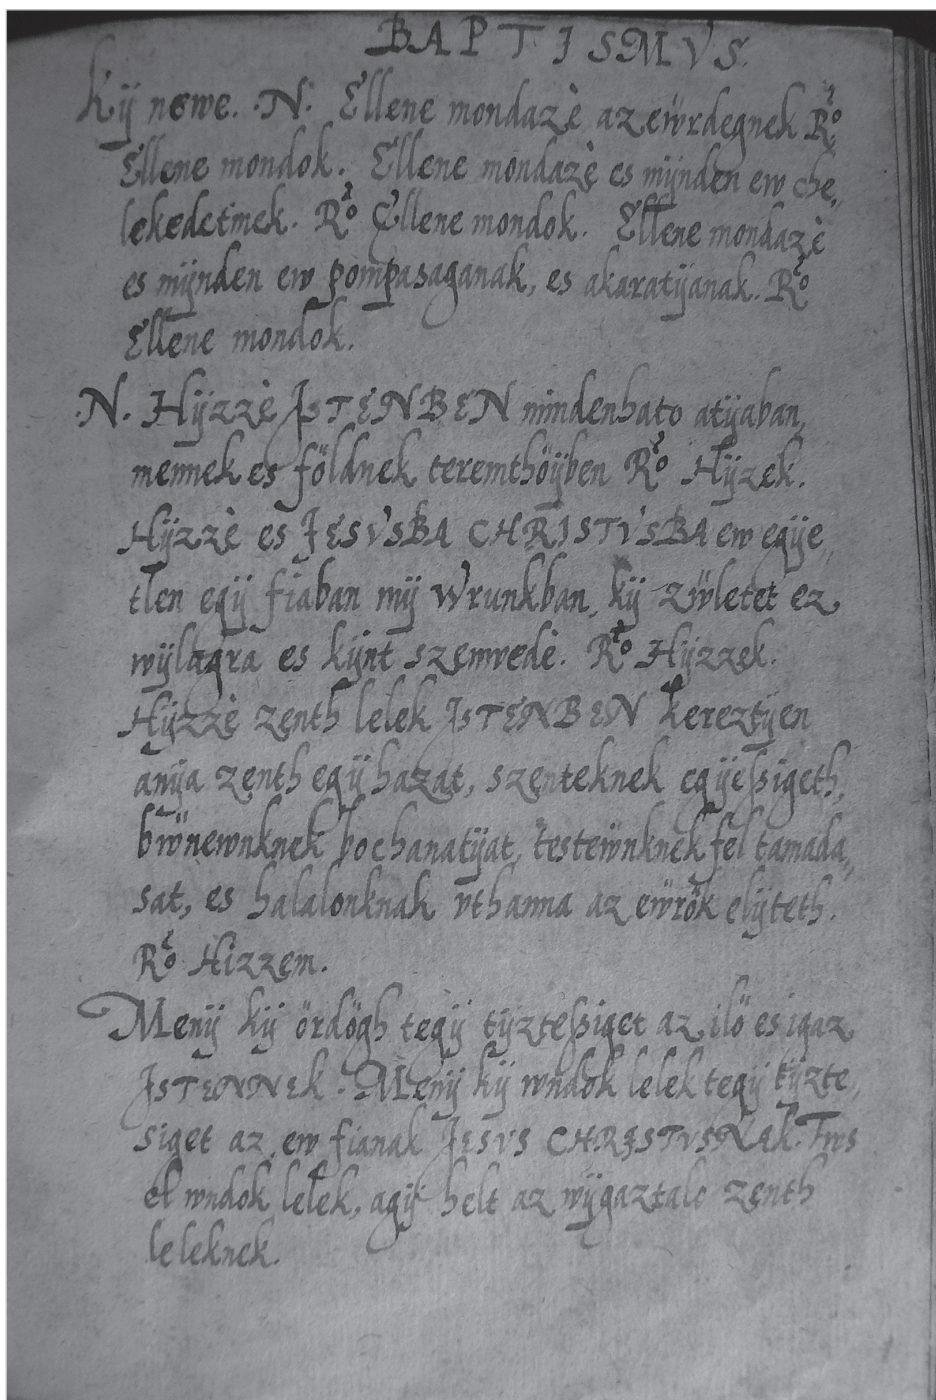 BAPTISMVS.
Kÿ newe. ·N· Ellene mondazè azewrdegnek Rº
Ellene mondok. Ellene mondazè es mÿnden ew che,,
lekedetinek. Rº Ellene mondok. Ellene mondazè
es mÿnden ew pompasaganak, es akaratÿanak. Rº
Ellene mondok.
·N· Hÿzzè JSTENBEN mindenhato atÿaban,
mennek es földnek teremthöÿben Rº Hÿzek.
Hÿzzè es JESVSBA CHRISTVSBA ew egÿe,,
tlen egÿ fiaban mÿ Wrunkban, kÿ zẅletet ez
wÿlagra es kÿnt szenwedè. Rº Hÿzzek.
Hÿzzè zenth lelek JSTENBEN kereztÿen
anÿa zenth egÿ hazat, szenteknek egÿeßigeth,
bẅnewnknek bochanatÿat, testeẅnknek fel tamada,,
sat, es halalonknak vthanna az eẅrök elÿteth.
Rº Hizzem.
Menÿ kÿ ördögh tegÿ tÿzteßiget az ilö es igaz
JSTENNEk. Menÿ kÿ wndok lelek tegÿ tÿzte,,
siget az ew fianak JESVS CHRISTVSNAk. Fws
el wndok lelek, agÿ helt az wÿgaztalo zenth
leleknek.